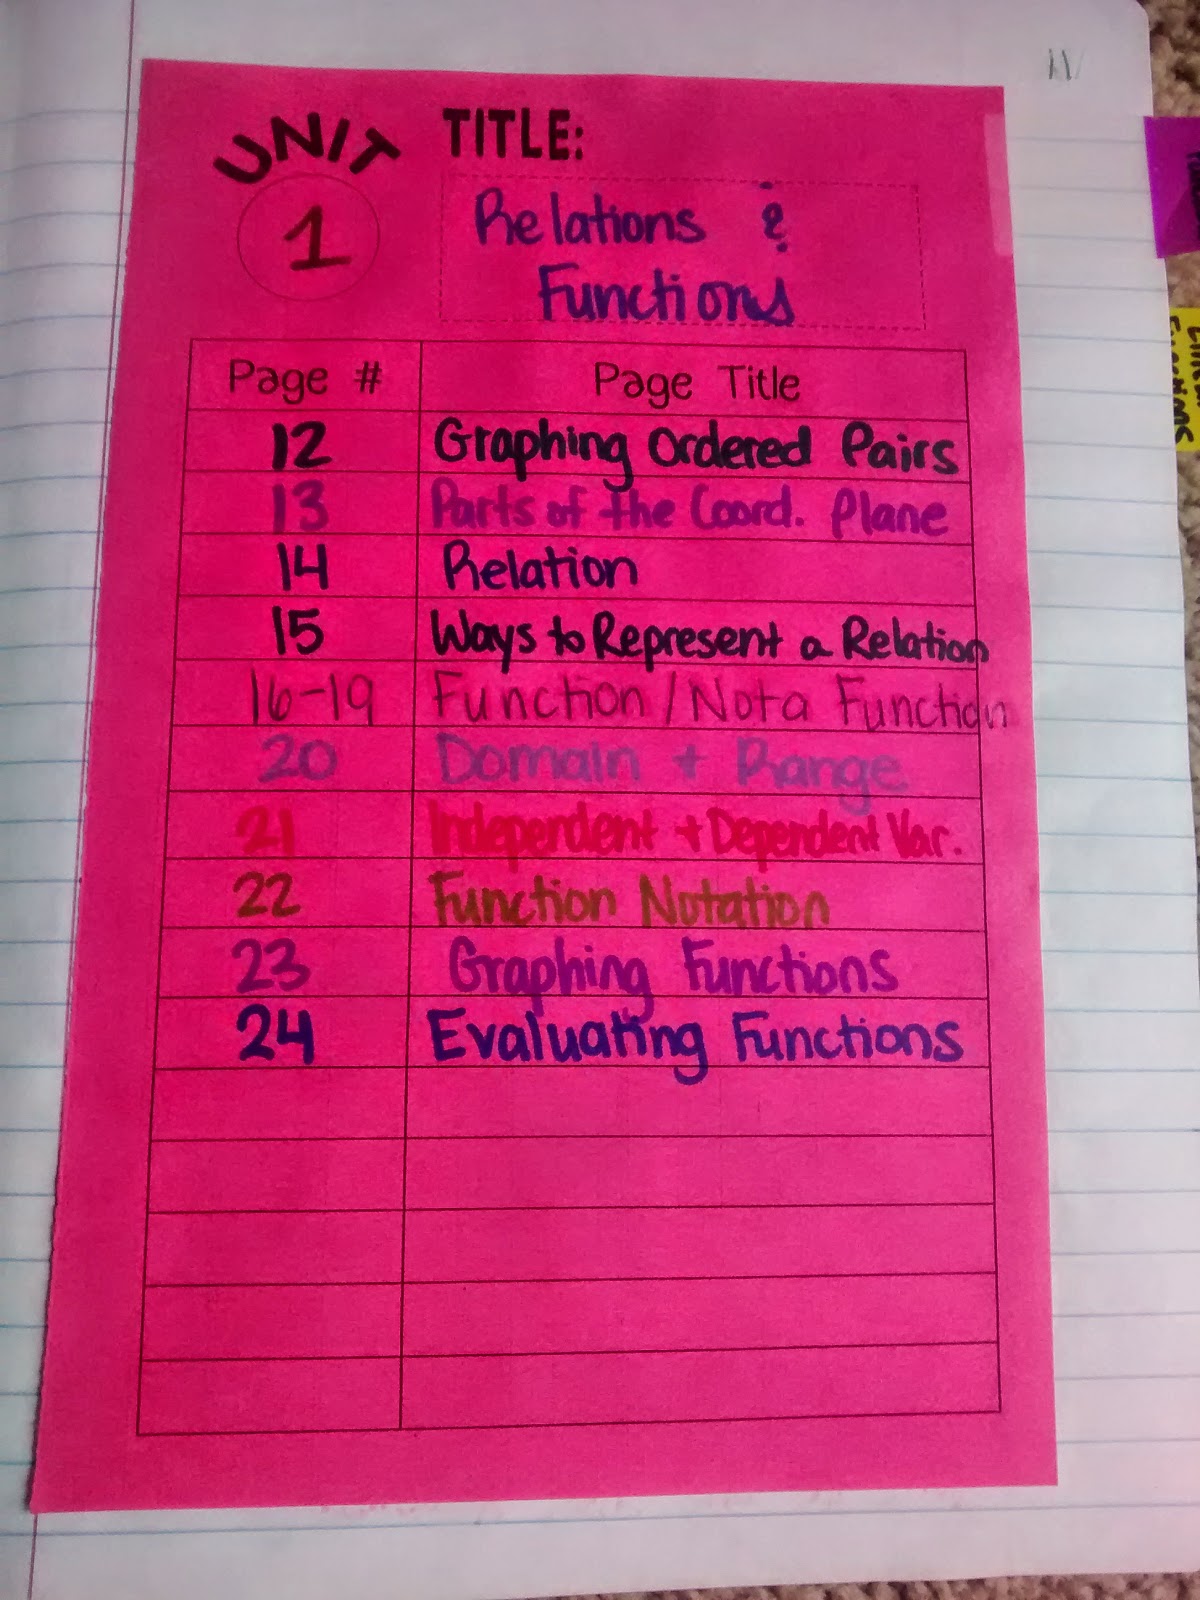 11
UNIT TITLE:
1 Relations &
Functions
Page # Page Title
12 Graphing Ordered Pairs
13 Parts of the Coord. Plane
14 Relation
15 Ways to Represent a Relation
16-19 Function/Not a Function
20 Domain + Range
21 Independent + Dependent Var.
22 Function Notation
23 Graphing Functions
24 Evaluating Functions